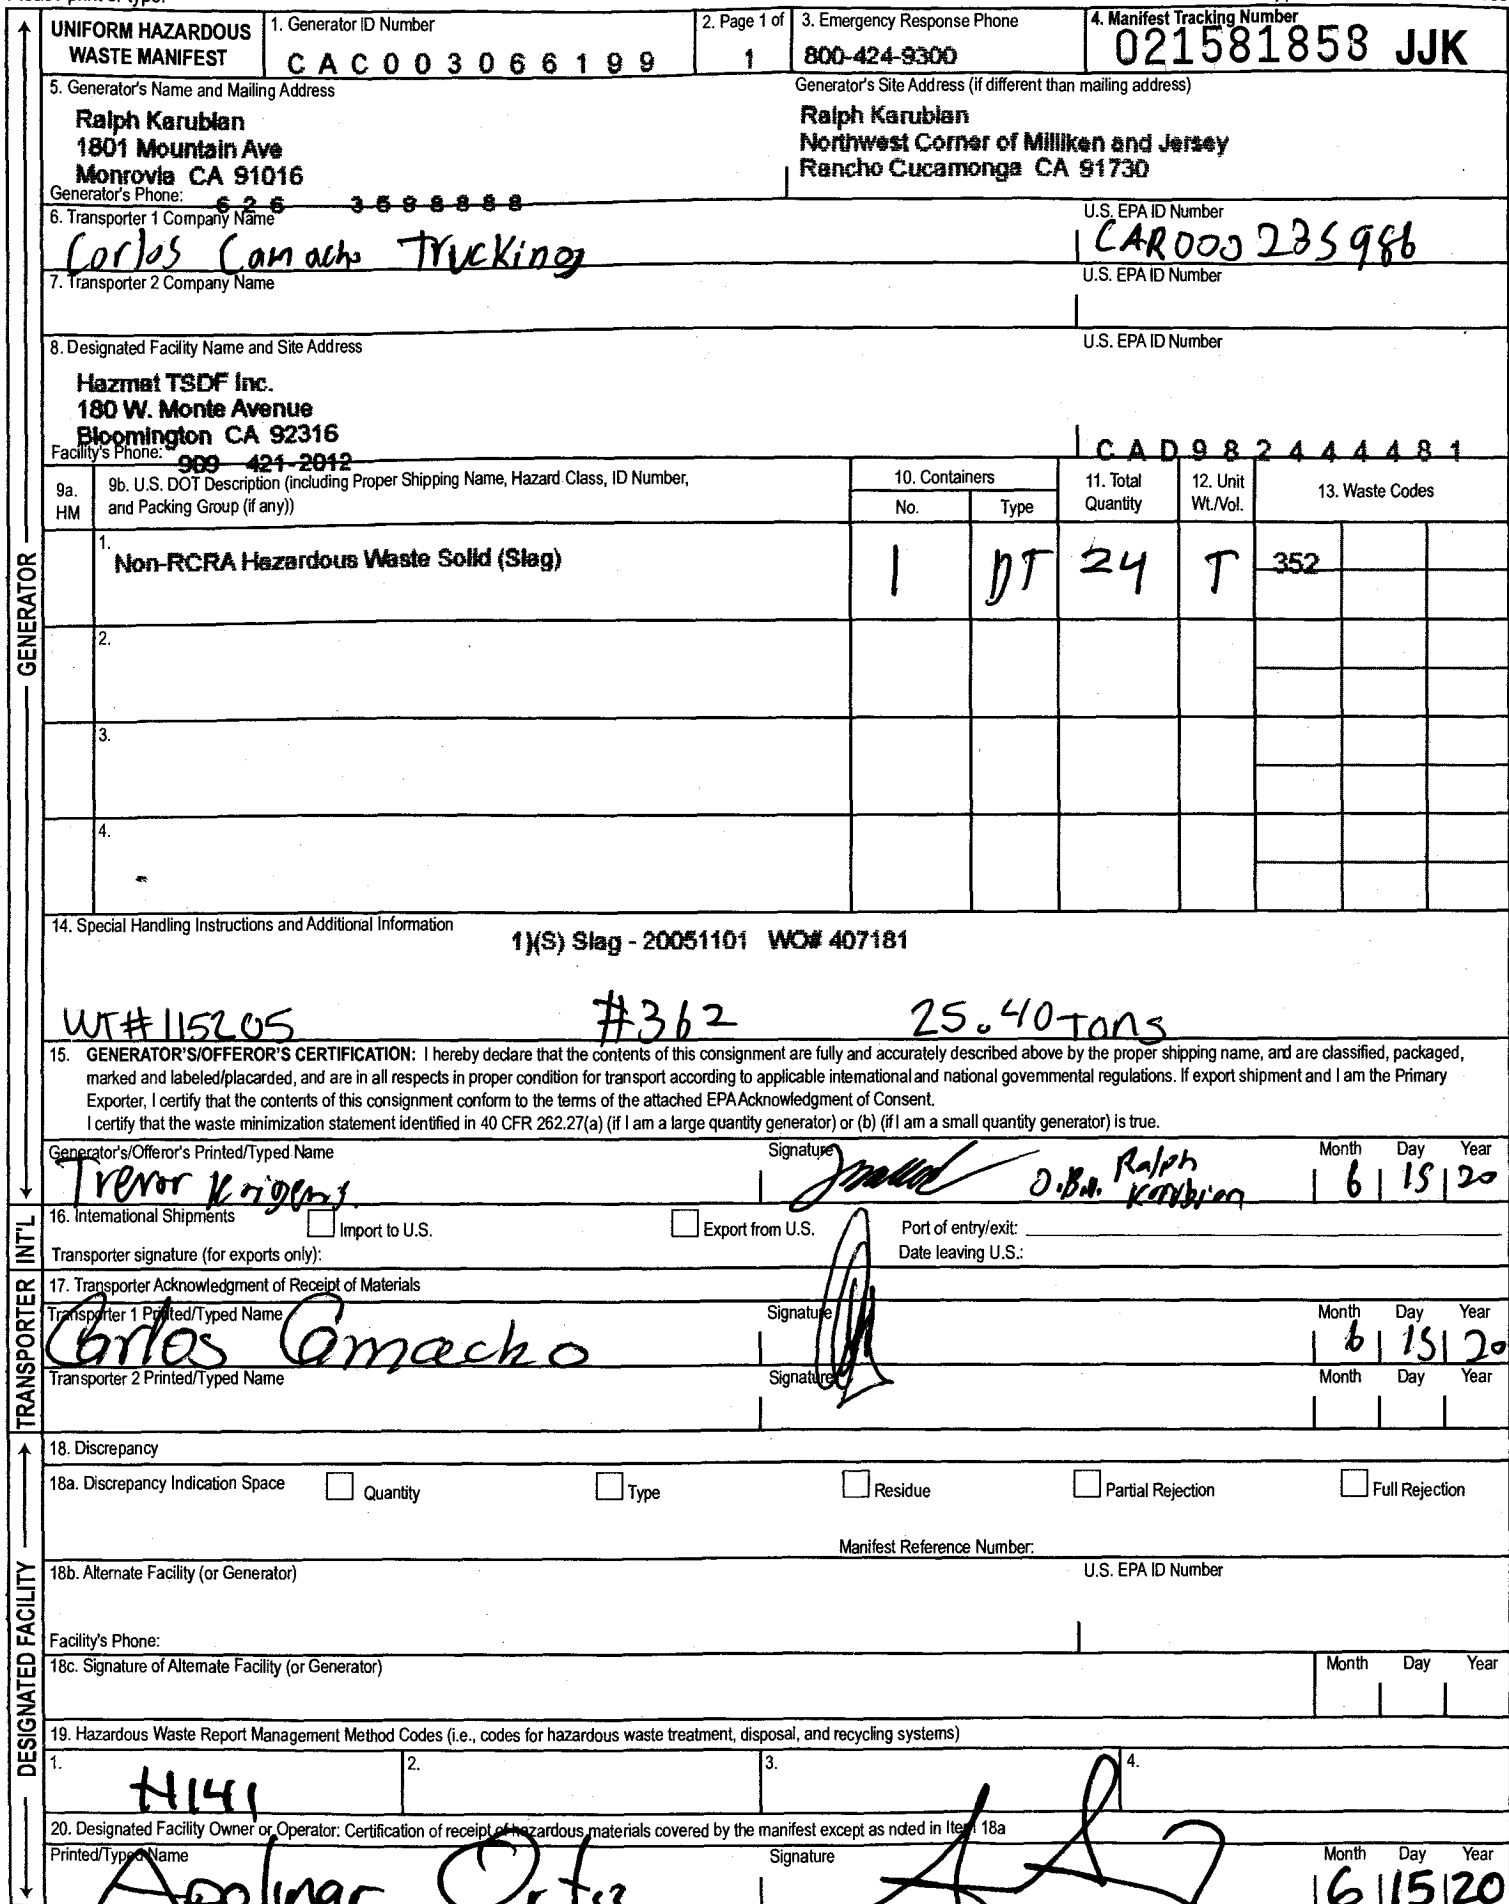 UNIFORM HAZARDOUS WASTE MANIFEST
1. Generator ID Number
CAC003066199
2. Page 1 of
1
3. Emergency Response Phone
800-424-9300
4. Manifest Tracking Number
021581858 JJK
5. Generator's Name and Mailing Address
Ralph Karubian
1801 Mountain Ave
Monrovia CA 91016
Generator's Phone: 626 3598888
Generator's Site Address (if different than mailing address)
Ralph Karubian
Northwest Corner of Milliken and Jersey
Rancho Cucamonga CA 91730
6. Transporter 1 Company Name
Carlos Camacho Trucking
U.S. EPA ID Number
CAR000235986
7. Transporter 2 Company Name
U.S. EPA ID Number
8. Designated Facility Name and Site Address
U.S. EPA ID Number
Hazmat TSDF Inc.
180 W. Monte Avenue
Bloomington CA 92316
Facility's Phone: 909 421-2012
CAD982444481
9a. HM
9b. U.S. DOT Description (including Proper Shipping Name, Hazard Class, ID Number, and Packing Group (if any))
10. Containers
No.
Type
11. Total Quantity
12. Unit Wt./Vol.
13. Waste Codes
1.
Non-RCRA Hazardous Waste Solid (Slag)
1
DT
24
T
352
2.
3.
4.
14. Special Handling Instructions and Additional Information
1)(S) Slag - 20051101 WO# 407181
WT#115205 #362 25.40 Tons
15. GENERATOR'S/OFFEROR'S CERTIFICATION: I hereby declare that the contents of this consignment are fully and accurately described above by the proper shipping name, and are classified, packaged,
marked and labeled/placarded, and are in all respects in proper condition for transport according to applicable international and national governmental regulations. If export shipment and I am the Primary
Exporter, I certify that the contents of this consignment conform to the terms of the attached EPA Acknowledgment of Consent.
I certify that the waste minimization statement identified in 40 CFR 262.27(a) (if I am a large quantity generator) or (b) (if I am a small quantity generator) is true.
Generator's/Offeror's Printed/Typed Name
Signature
Month Day Year
Trevor
O.B.H. Ralph Karubian
6 15 20
16. International Shipments
Import to U.S.
Export from U.S.
Port of entry/exit:
Transporter signature (for exports only):
Date leaving U.S.:
17. Transporter Acknowledgment of Receipt of Materials
Transporter 1 Printed/Typed Name
Signature
Month Day Year
Carlos Camacho
6 15 20
Transporter 2 Printed/Typed Name
Signature
Month Day Year
18. Discrepancy
18a. Discrepancy Indication Space
Quantity
Type
Residue
Partial Rejection
Full Rejection
Manifest Reference Number:
18b. Alternate Facility (or Generator)
U.S. EPA ID Number
Facility's Phone:
18c. Signature of Alternate Facility (or Generator)
Month Day Year
19. Hazardous Waste Report Management Method Codes (i.e., codes for hazardous waste treatment, disposal, and recycling systems)
1.
H141
2.
3.
4.
20. Designated Facility Owner or Operator: Certification of receipt of hazardous materials covered by the manifest except as noted in Item 18a
Printed/Typed Name
Signature
Month Day Year
Apolinar Ortiz
6 15 20
GENERATOR
INT'L
TRANSPORTER
DESIGNATED FACILITY